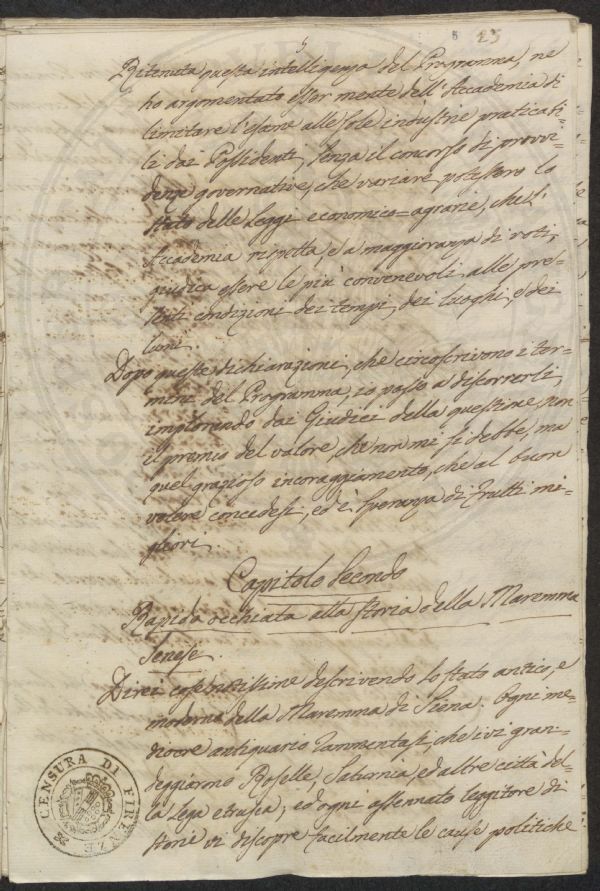 5
23
Ritenuta questa intelligenza del Programma, ne
ho argomentato esser mente dell'Accademia di
limitare l'esame alle sole industrie praticabi-
li dai Possidenti, senza il concorso di provvi-
denze governative, che variare potessero lo
stato delle Leggi economico=agrarie, che l'
Accademia rispetta, e a maggioranza di voti,
giudica essere le più convenevoli alle pre-
senti condizioni dei tempi, dei luoghi, e dei
lumi.
Dopo queste dichiarazioni, che circoscrivono i ter-
mini del Programma, io passo a discorrerli,
implorando dai Giudici della questione, non
il premio del valore, che non mi si debbe, ma
quel grazioso incoraggiamento, che al buon
volere concedesi, ed è speranza di frutti mi-
gliori.
Capitolo Secondo
Rapida occhiata alla storia della Maremma
Senese.
Direi cose notissime descrivendo lo stato antico, e
moderno della Maremma di Siena. Ogni me-
diocre antiquario rammentasi, che ivi gran-
deggiarono Roselle, Saturnia, ed altre città del-
la lega etrusca; ed ogni assennato leggitore di
storie vi discopre facilmente le cause politiche
CENSURA DI FIRENZE